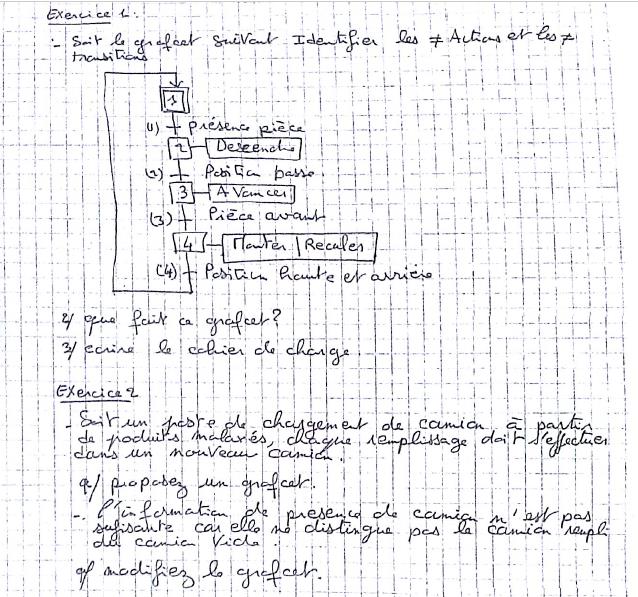 Exercice 1:
- Soit le grafcet suivant Identifier les ≠ Actions et les ≠
transitions
1
1) présence pièce
2 Descendre
(2) Position basse
3 Avancer
(3) Pièce avant
4 Monter | Reculer
(4) Position haute et arrière
2/ que fait ce grafcet?
3/ ecrire le cahier de charge.
Exercice 2
- Soit un poste de chargement de camion à partir
de produits , chaque remplissage doit s'effectuer
dans un nouveau camion.
q/ proposez un grafcet.
- l'information de presence de camion n'est pas
sufisante car elle ne distingue pas le camion rempli
du camion vide.
q/ modifiez le grafcet.